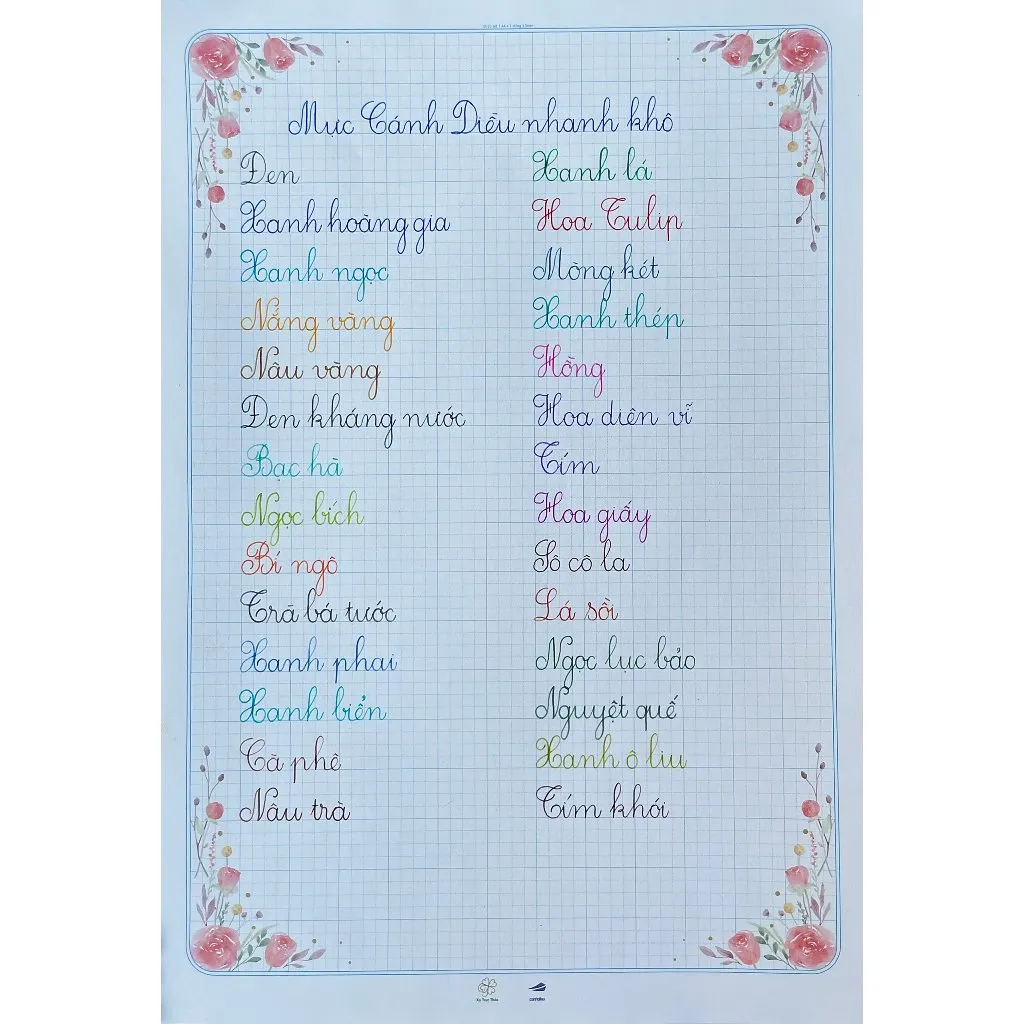 Mực Cánh Diều nhanh khô
Đen
Xanh hoàng gia
Xanh ngọc
Nắng vàng
Nâu vàng
Đen kháng nước
Bạc hà
Ngọc bích
Bí ngô
Trà bá tước
Xanh phai
Xanh biển
Cà phê
Nâu trà
Xanh lá
Hoa Tulip
Mòng két
Xanh thép
Hồng
Hoa diên vĩ
Tím
Hoa giấy
Sô cô la
Lá sồi
Ngọc lục bảo
Nguyệt quế
Xanh ô liu
Tím khói